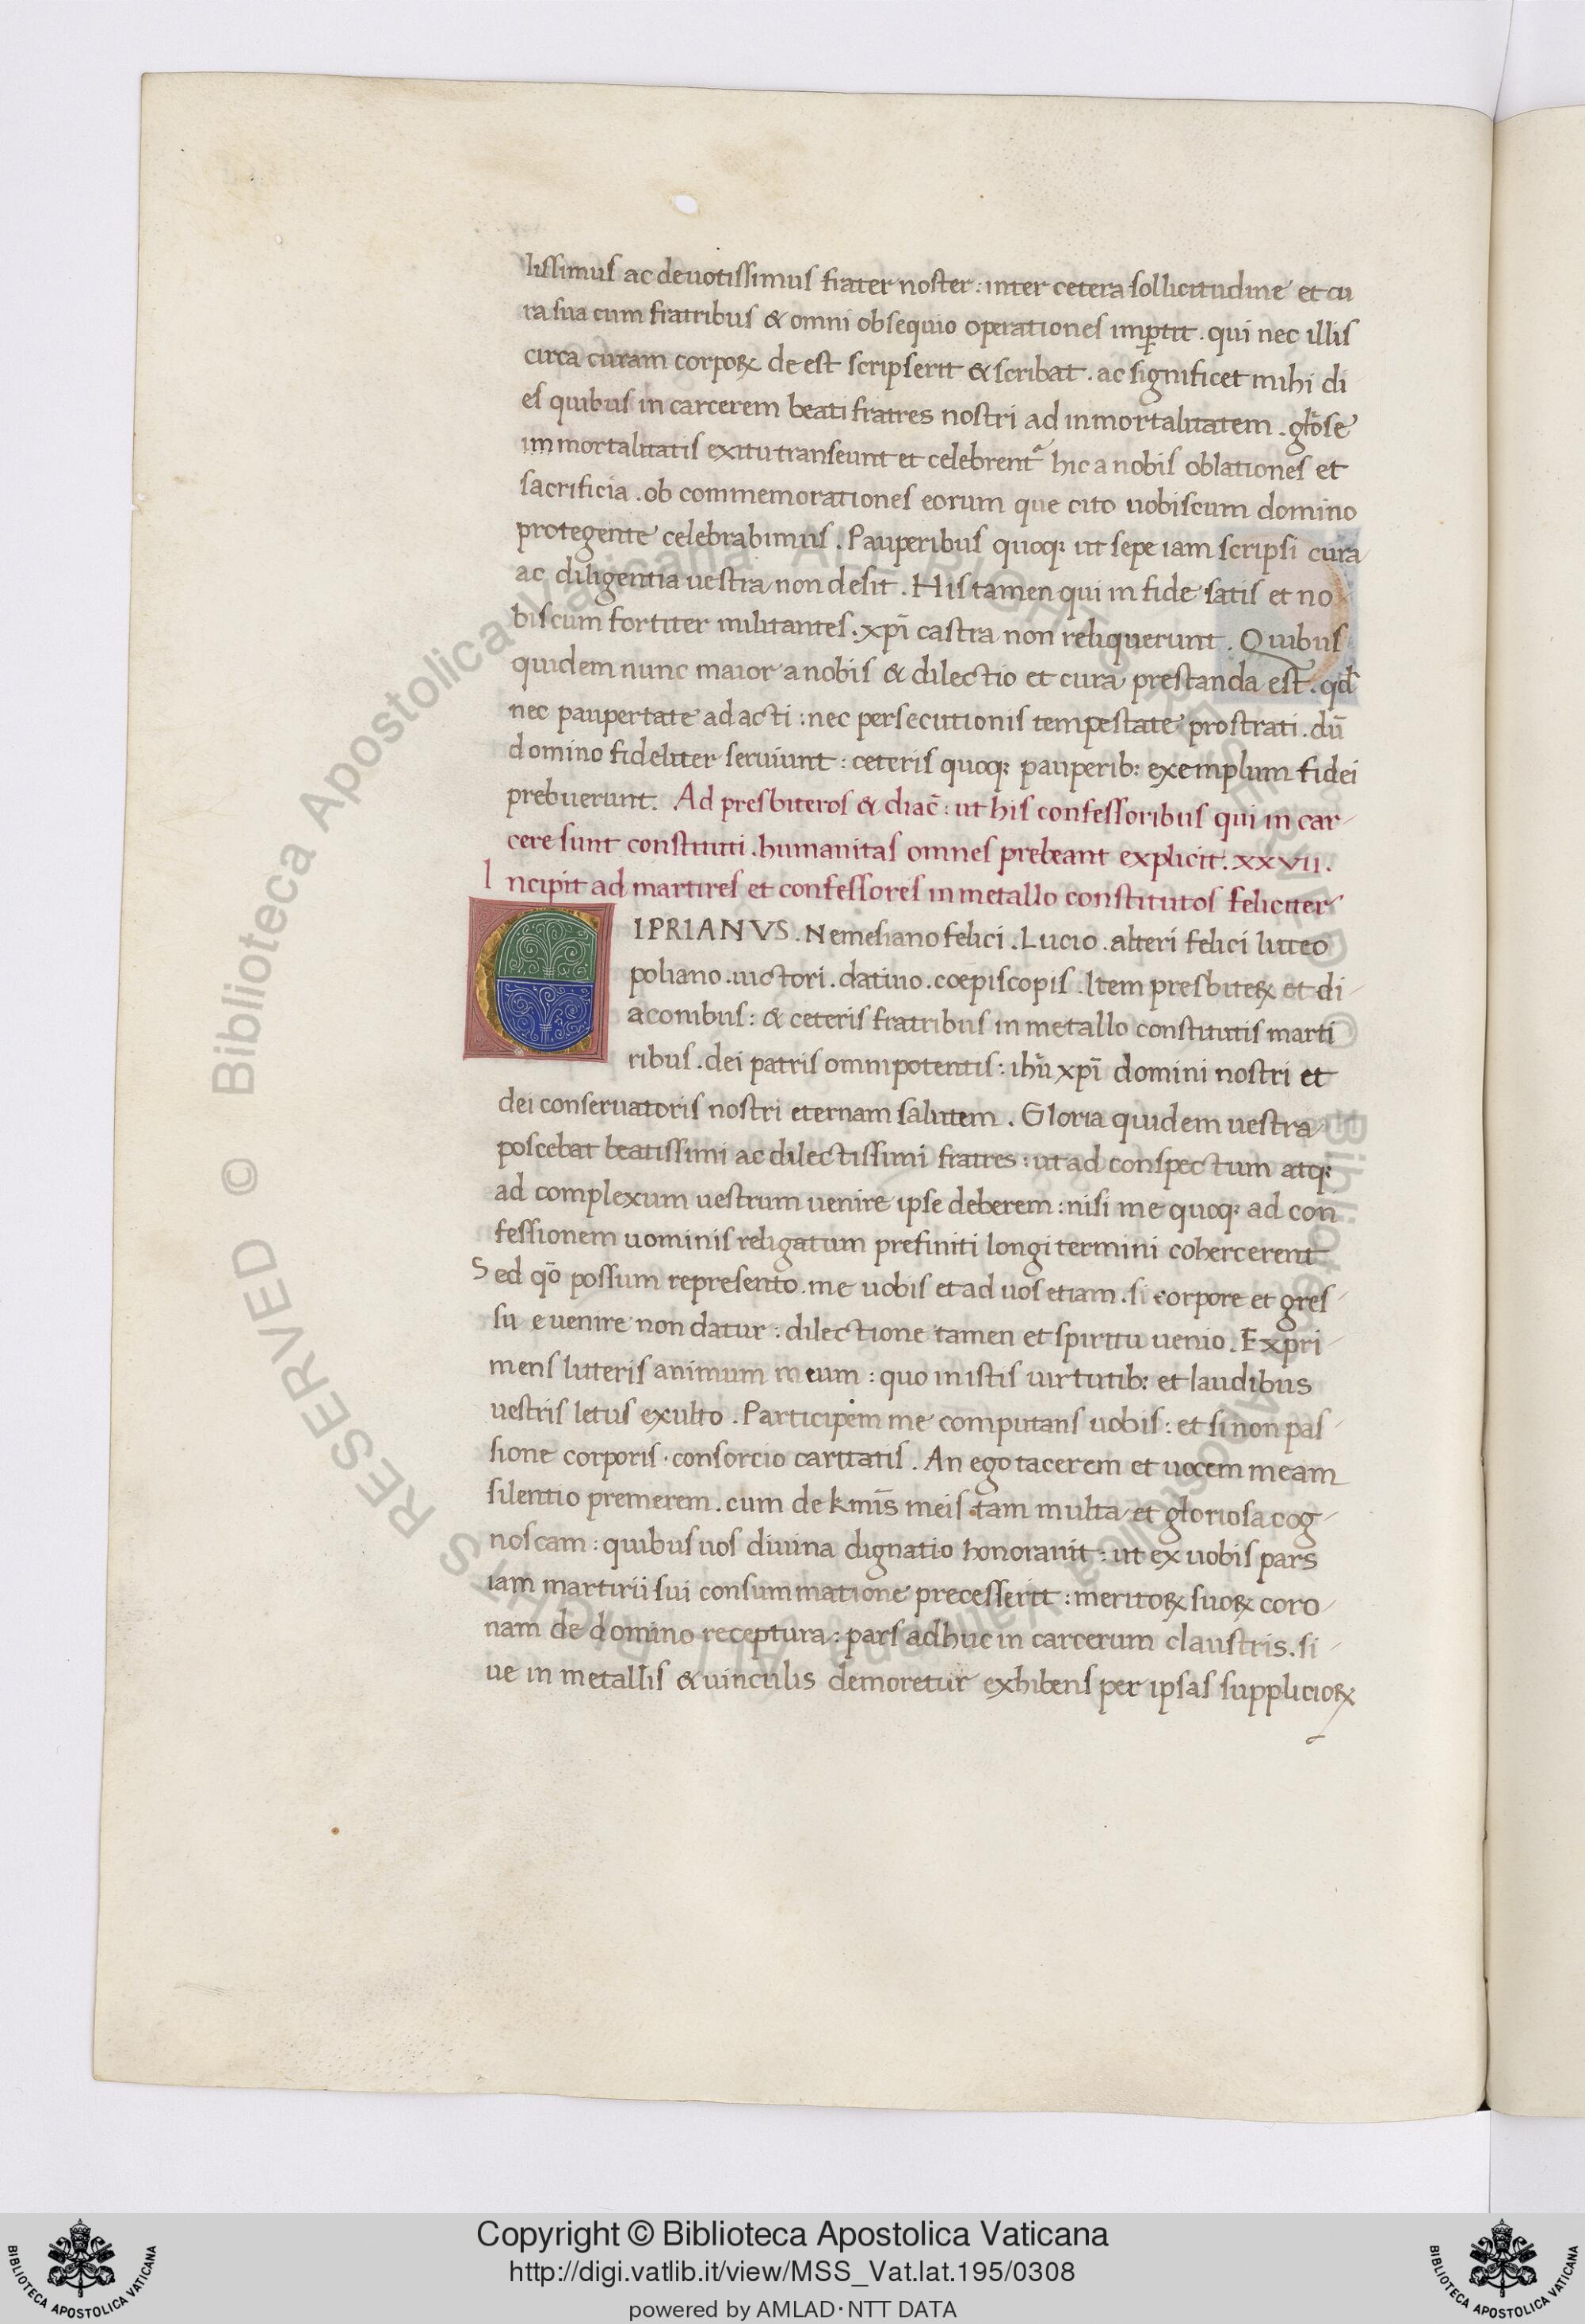 lissimus ac deuotissimus frater noster : inter cetera sollicitudine et cu
ra sua cum fratribus & omni obsequio operationes imꝑtit . qui nec illis
circa curam corpoꝝ de est scripserit & scribat . ac significet mihi di
es quibus in carcerem beati fratres nostri ad inmortalitatem . gl̄ose
immortalitatis exitu transeunt et celebrent᷑ hic a nobis oblationes et
sacrificia . ob commemorationes eorum que cito uobiscum domino
protegente celebrabimus . Pauperibus quoqꝫ ut sepe iam scripsi cura
ac diligentia uestra non desit . His tamen qui in fide satis et no
biscum fortiter militantes : xpī castra non reliquerunt . Quibus
quidem nunc maior a nobis & dilectio et cura prestanda est . qđ
nec paupertate adacti : nec persecutionis tempestate prostrati . dū
domino fideliter seruiunt : ceteris quoqꝫ pauperibꝫ exemplum fidei
prebuerunt . Ad presbiteros & diac̄ : ut his confessoribus qui in car
cere sunt constituti . humanitas omnes prebeant explicit : xxvii .
Incipit ad martires et confessores in metallo constitutos feliciter
CIPRIANVS . Nemesiano felici . Lucio . alteri felici litteo
poliano . uictori . datiuo . coepiscopis . Item presbiteꝝ et di
aconibus : & ceteris fratribus in metallo constitutis marti
ribus . dei patris omnipotentis : ihū xpī domini nostri et
dei conseruatoris nostri eternam salutem . Gloria quidem uestra
poscebat beatissimi ac dilectissimi fratres : ut ad conspectum atqꝫ
ad complexum uestrum uenire ipse deberem : nisi me quoqꝫ ad con
fessionem uominis religatum prefiniti longi termini cohercerent
Sed qō possum represento . me uobis et ad uos etiam . si corpore et gres
su e uenire non datur : dilectione tamen et spiritu uenio . Expri
mens litteris animum meum : quo in istis uirtutibꝫ et laudibus
uestris letus exulto . Participem me computans uobis : et si non pas
sione corporis . consorcio caritatis . An ego tacerem et uocem meam
silentio premerem . cum de kmīs meis tam multa et gloriosa cog
noscam : quibus uos diuina dignatio honorauit : ut ex uobis pars
iam martirii sui consummatione precesserit : meritoꝝ suoꝝ coro
nam de domino receptura : pars adhuc in carcerum claustris . si
ue in metallis & uinculis demoretur exhibens per ipsas supplicioꝝ
Copyright © Biblioteca Apostolica Vaticana
http://digi.vatlib.it/view/MSS_Vat.lat.195/0308
powered by AMLAD·NTT DATA
BIBLIOTECA APOSTOLICA VATICANA
BIBLIOTECA APOSTOLICA VATICANA